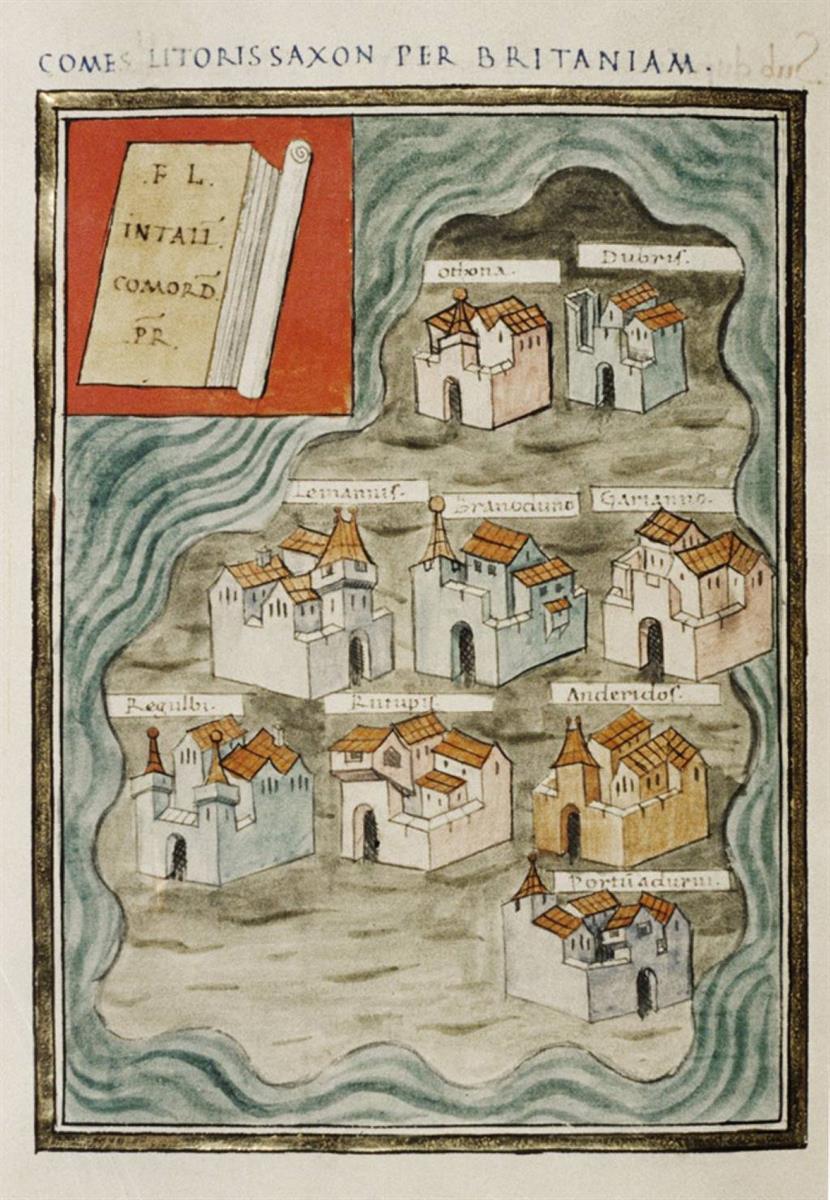 COMES LITORIS SAXON PER BRITANIAM.
.F L.
INTALL̄.
COMORD̄.
.P̄R.
othona.
Dubris.
Lemannis.
Branoduno
Garianno.
Regulbi.
Rutupis.
Anderidos.
Portū adurni.
Sub dup